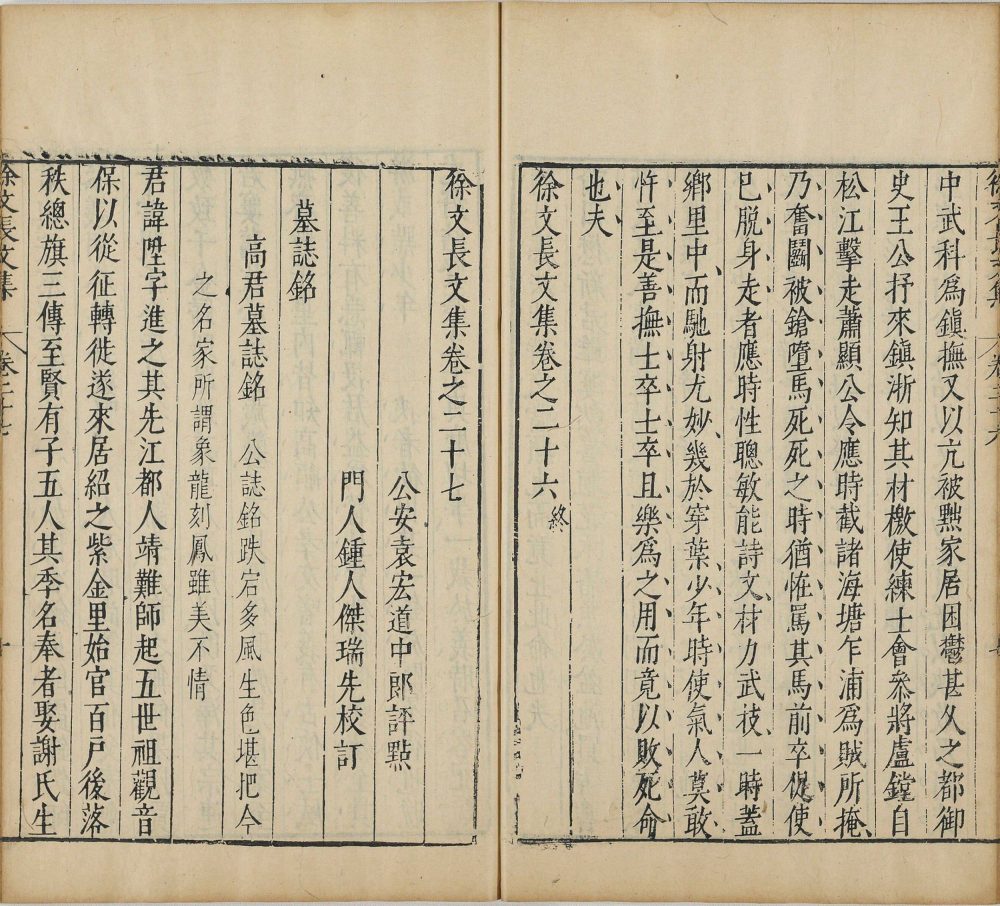 中武科爲鎮撫又以亢被㸃家居困鬱甚乆之都御
史王公抒來鎮淅知其材檄使練士會叅將盧鏜自
松江擊走蕭顯公令應時截諸海塘乍浦爲賊所掩
乃奮鬬被鎗墮馬死死之時猶恠罵其馬前卒促使
巳脱身走者應時性聰敏能詩文材力武技一時蓋
鄉里中而馳射尤妙幾於穿葉少年時使氣人莫敢
忤至是善撫士卒士卒且樂爲之用而竟以敗死命
也夫
徐文長文集卷之二十六終
徐文長文集卷之二十七
公安袁宏道中郎評㸃
門人鍾人傑瑞先校訂
墓誌銘
高君墓誌銘 公誌銘跌宕多風生色堪把今
之名家所謂象龍刻鳳雖美不情
君諱陞字進之其先江都人靖難師起五世祖觀音
保以從征轉徙遂來居紹之紫金里始官百戸後落
秩總旗三傳至賢有子五人其季名奉者娶謝氏生
徐文長文集 卷二十七